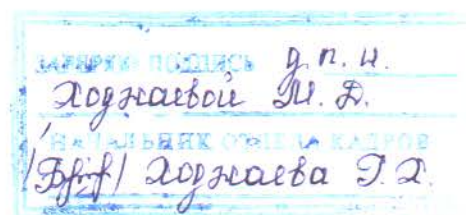 ЗАВЕРЯЮ ПОДПИСЬ д.п.н.
Ходжаевой М. Д.
НАЧАЛЬНИК ОТДЕЛА КАДРОВ
Ходжаева Г. Х.